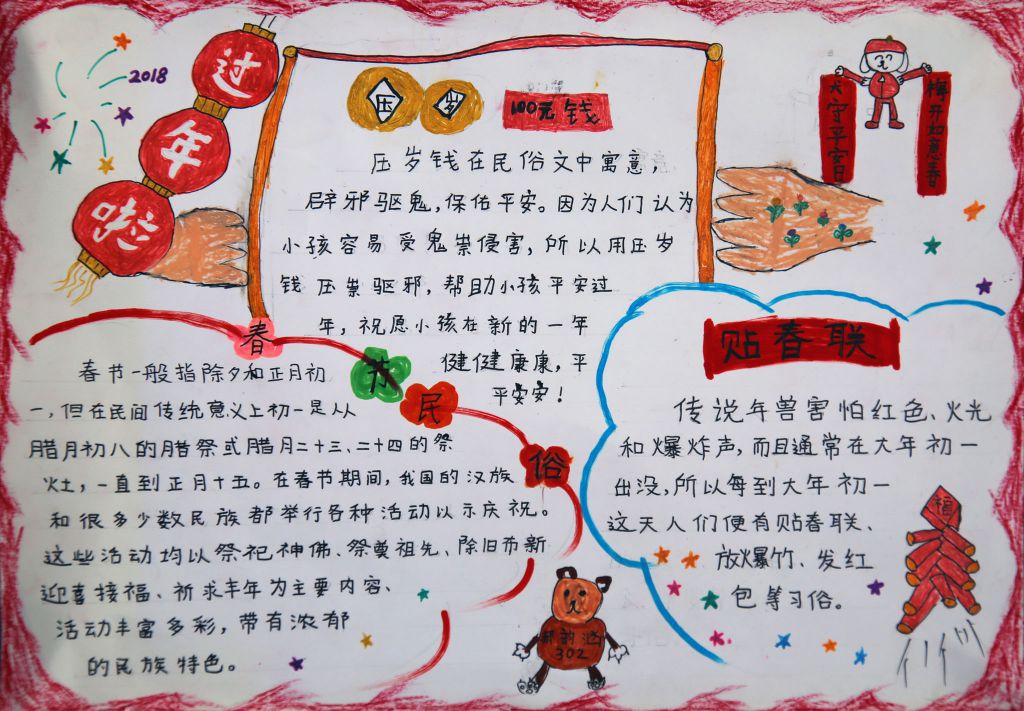 2018
过
年
啦
压岁
100元钱
压岁钱在民俗文中寓意,
辟邪驱鬼,保佑平安。因为人们认为
小孩容易受鬼祟侵害,所以用压岁
钱压祟驱邪,帮助小孩平安过
年,祝愿小孩在新的一年
健健康康,平
平安安!
犬守平安日
梅开如意春
春节民俗
春节一般指除夕和正月初
一,但在民间传统意义上初一是从
腊月初八的腊祭或腊月二十三、二十四的祭
灶,一直到正月十五。在春节期间,我国的汉族
和很多少数民族都举行各种活动以示庆祝。
这些活动均以祭祀神佛、祭奠祖先、除旧布新
迎喜接福、祈求丰年为主要内容、
活动丰富多彩,带有浓郁
的民族特色。
贴春联
传说年兽害怕红色、火光
和爆炸声,而且通常在大年初一
出没,所以每到大年初一
这天人们便有贴春联、
放爆竹、发红
包等习俗。
福
302